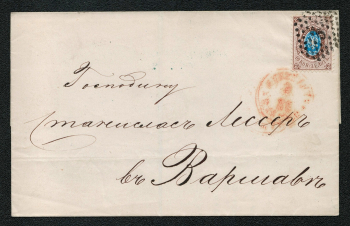 Господину
Станислась Лессеръ
въ Варшавѣ